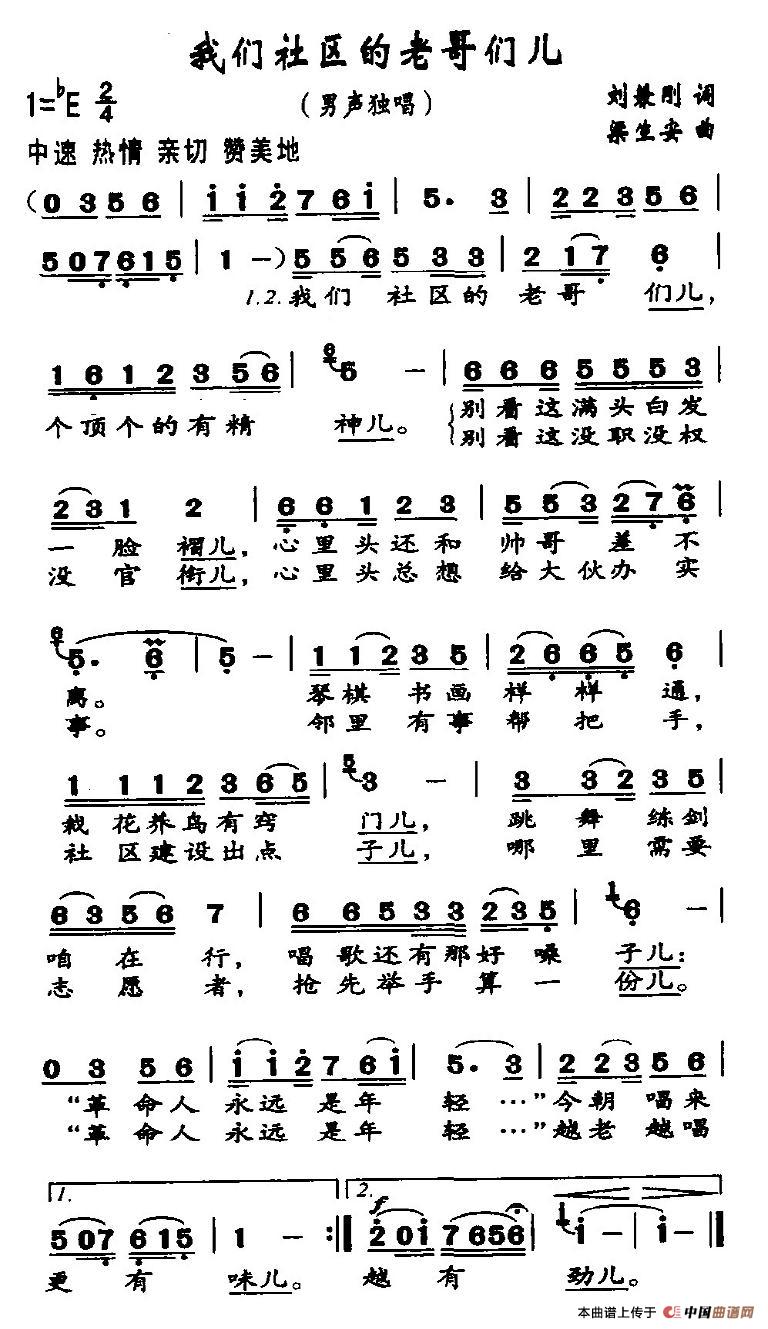 我们社区的老哥们儿
1=♭E 2/4
（男声独唱）
刘兼刚 词
梁生安 曲
中速 热情 亲切 赞美地
(0 3 5 6 | i i 2 7 6 i | 5. 3 | 2 2 3 5 6 |
5 0 7 6 1 5 | 1 –) 5 5 6 5 3 3 | 2 1 7 6 |
1.2.我们 社区的 老哥 们儿，
1 6 1 2 3 5 6 | 6 5 – | 6 6 6 5 5 5 3 |
个顶个的有精 神儿。 别看这满头白发
别看这没职没权
2 3 1 2 | 6 6 1 2 3 | 5 5 3 2 7 6 |
一脸褶儿，心里头还和 帅哥 差不
没官衔儿，心里头总想 给大伙办实
6 5. 6 | 5 – | 1 1 2 3 5 | 2 6 6 5 6 |
离。 琴棋书画样样通，
事。 邻里有事帮把手，
1 1 1 2 3 6 5 | 5 3 – | 3 3 2 3 5 |
栽花养鸟有窍 门儿， 跳舞练剑
社区建设出点 子儿， 哪里需要
6 3 5 6 7 | 6 6 5 3 3 2 3 5 | 1 6 – |
咱在行， 唱歌还有那好嗓 子儿：
志愿者， 抢先举手算一 份儿。
0 3 5 6 | i i 2 7 6 i | 5. 3 | 2 2 3 5 6 |
“革命人 永远是年 轻…”今朝唱来
“革命人 永远是年 轻…”越老越唱
1. 2. f
5 0 7 6 1 5 | 1 – :| 2 0 i 7 6 5 6 | i i – | i – |
更有 味儿。 越有 劲儿。
本曲谱上传于 中国曲谱网